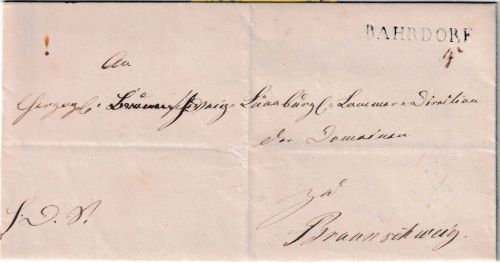 BAHRDORF
An
Herzogl. Braunschweig Lüneburg. Cammer Direction
der Domainen
zu
Braunschweig.
H. D. S.